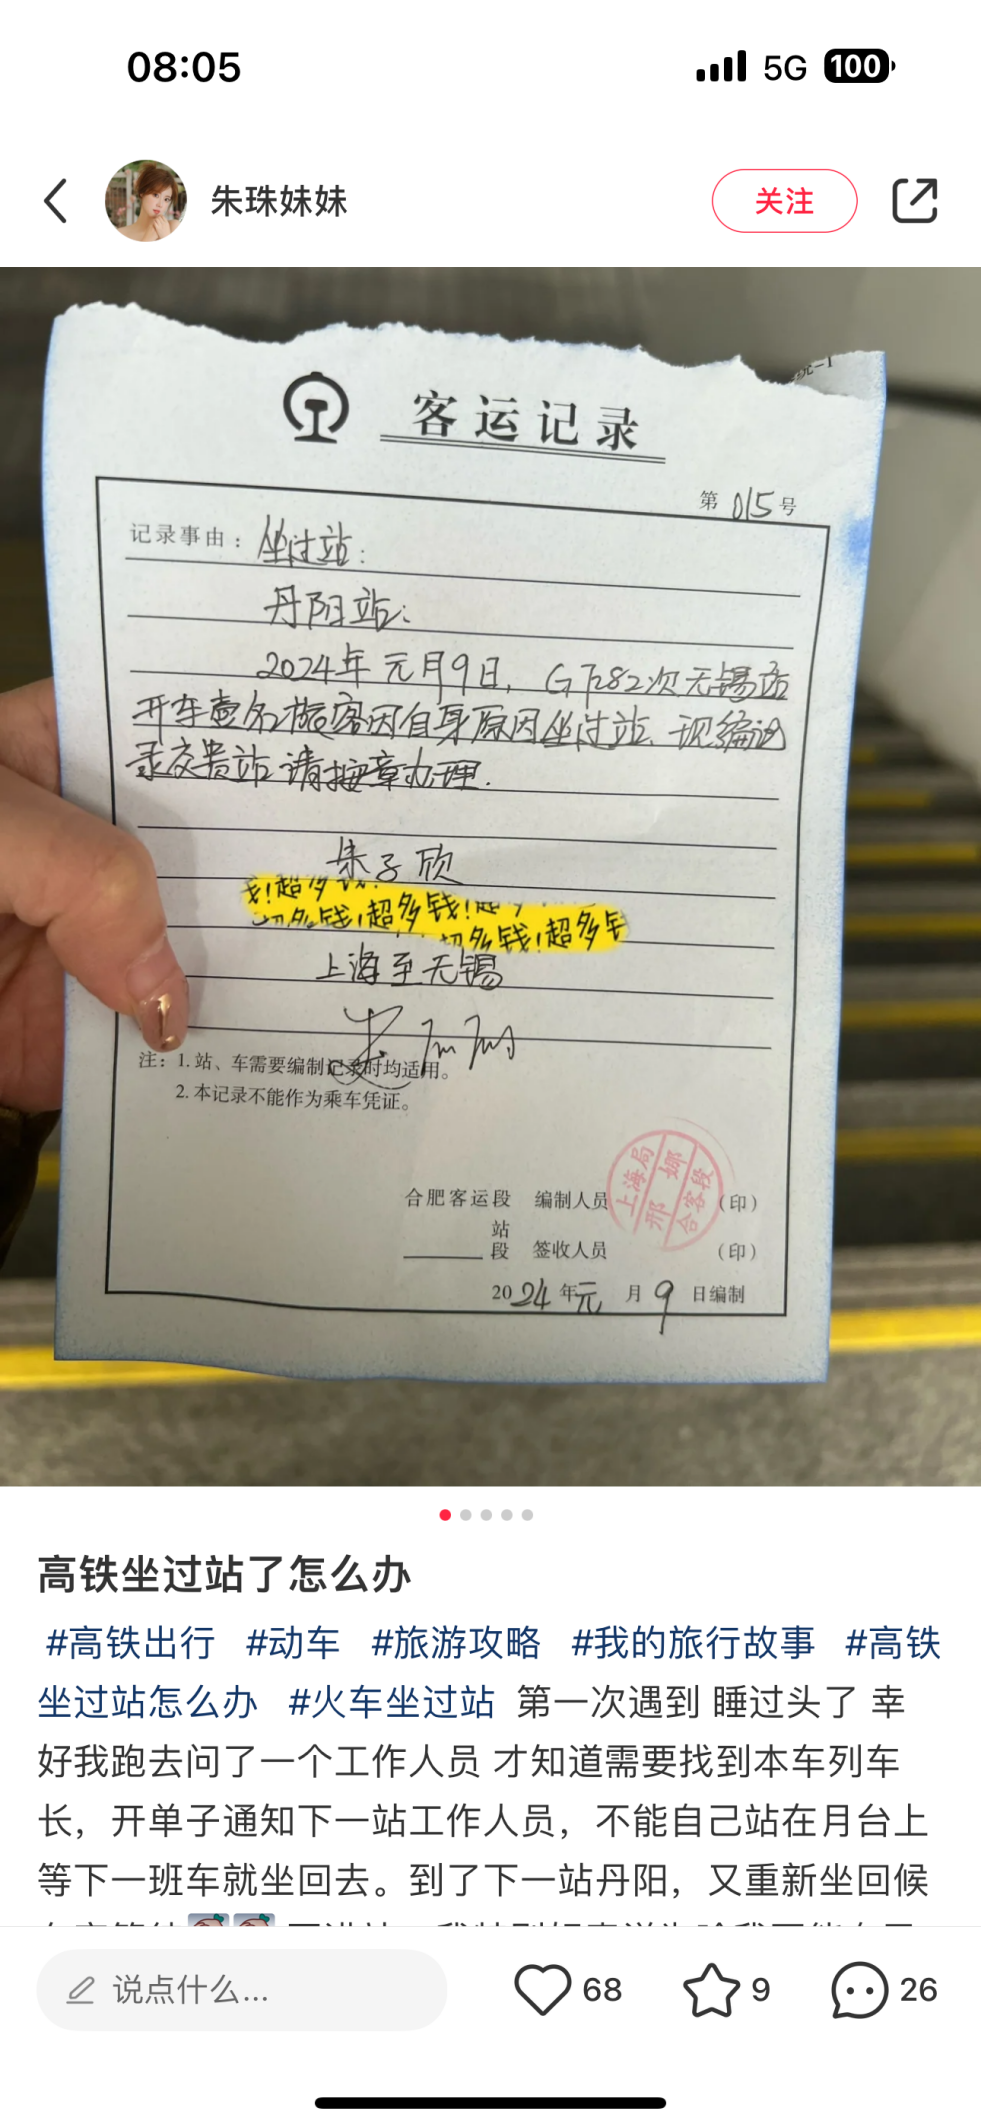 08:05
5G
100
朱珠妹妹
关注
客运记录
第 015 号
记录事由：坐过站：
丹阳站：
2024年元月9日，G7282次无锡站
开车壹名旅客因自身原因坐过站、现编记
录交贵站请按章办理.
朱子欣
超多钱!超多钱!
超多钱!超多钱
上海至无锡
注：1.站、车需要编制记录时均适用。
2.本记录不能作为乘车凭证。
上海局
邢娜
合客段
合肥客运段 编制人员 （印）
站
段 签收人员 （印）
2024年元月9日编制
高铁坐过站了怎么办
#高铁出行 #动车 #旅游攻略 #我的旅行故事 #高铁
坐过站怎么办 #火车坐过站 第一次遇到 睡过头了 幸
好我跑去问了一个工作人员 才知道需要找到本车列车
长，开单子通知下一站工作人员，不能自己站在月台上
等下一班车就坐回去。到了下一站丹阳，又重新坐回候
说点什么...
68
9
26